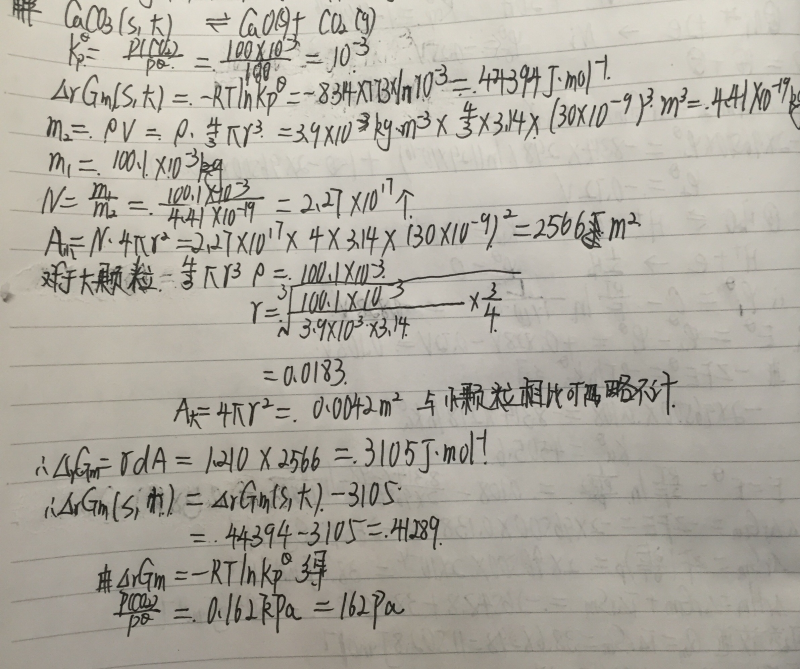 解 CaCO3(s,大) ⇌ CaO(s)+ CO2(g)
Kp^θ= P(CO2)/pθ = 100×10^-3/100 = 10^-3
ΔrGm(s,大) = -RTlnKp^θ = -8.314×773×ln10^-3 = 44394J·mol^-1
m2 = ρV = ρ·4/3πr^3 = 3.9×10^3kg·m^-3 × 4/3 × 3.14 × (30×10^-9)^3 m^3 = 4.41×10^-19kg
m1 = 100.1×10^-3kg
N= m1/m2 = 100.1×10^-3/4.41×10^-19 = 2.27×10^17个
A小=N·4πr^2=2.27×10^17× 4×3.14×(30×10^-9)^2=2566m^2
对于大颗粒 4/3πr^3 ρ = 100.1×10^-3
r= ∛(100.1×10^-3/3.9×10^3×3.14 ×3/4)
= 0.0183
A大=4πr^2 = 0.0042m^2 与小颗粒相比可忽略不计
∴ΔrGm=σdA = 1.210×2566 = 3105J·mol^-1
∴ΔrGm(s,小) = ΔrGm(s,大) -3105
= 44394-3105=41289
由ΔrGm=-RTlnKp^θ 得
P(CO2)/pθ = 0.162kPa = 162Pa